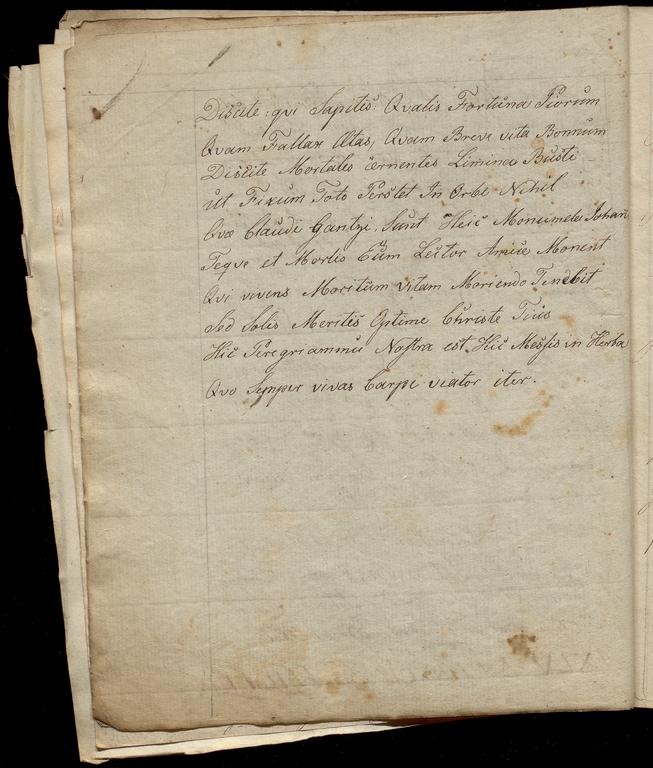 Discite qvi Sapitis: Qvalis Fortuna Piorum
Qvam Fallax Ætas, Qvam Brevi vita Bonnum
Discite Mortales cernentes Limina Busti
ut Fixum Toto Perstet In Orbe Nihil
Qvæ Claudi Gantzi, Sunt Hic Monumela Johañ
Teqve et Mortis Eum Lector Amice Monent
Qvi vivens Moritum vitam Moriendo Tenebit
Sed Solis Meritis Optime Christe Tuis
Hic Peregriammus Nostra est Hic Messis in Herba
Qvo Semper vivas Carpe viator iter.